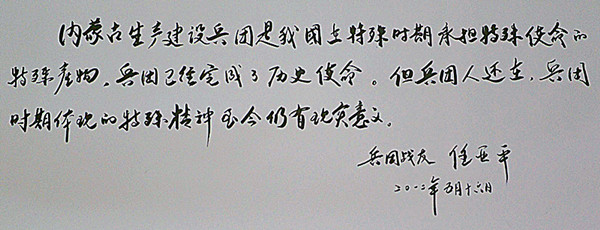 内蒙古生产建设兵团是我国在特殊时期承担特殊使命的
特殊产物。兵团已经完成了历史使命。但兵团人还在，兵团
时期体现的特殊精神至今仍有现实意义。
兵团战友 任亚平
二〇一二年五月十六日